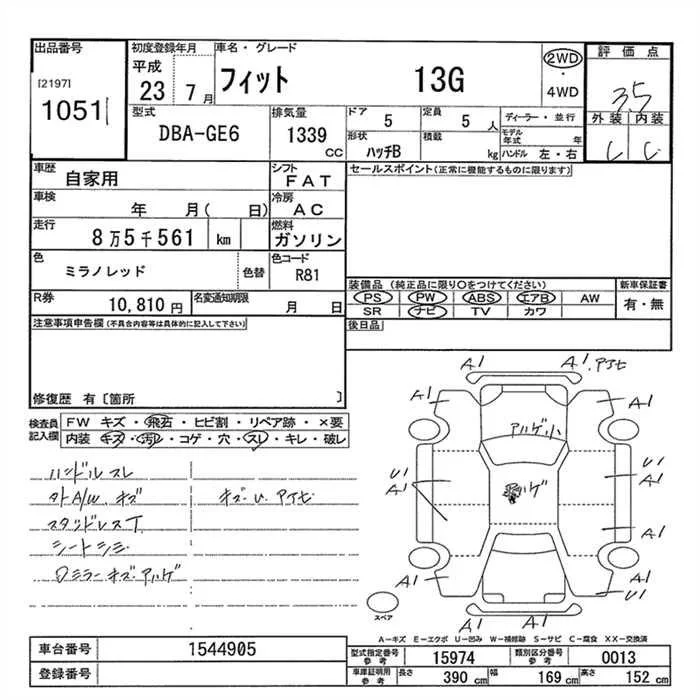 出品番号
[2197]
1051
初度登録年月
平成
23 7月
車名・グレード
フィット 13G
2WD
・
4WD
評価点
3.5
外装 内装
C C
型式
DBA-GE6
排気量
1339
CC
ドア
5
定員
5 人
形状
ハッチB
積載
kg
ディーラー・並行
モデル年式 年
ハンドル 左・右
車歴
自家用
シフト
FAT
車検
年 月( 日)
冷房
AC
走行
8万5千561 km
燃料
ガソリン
色
ミラノレッド
色替
色コード
R81
R券
10,810円
名変通知期限
月 日
セールスポイント(正常に機能するものに限ります)
装備品 (純正品に限り○をつけてください)
新車保証書
PS PW ABS エアB AW
有・無
SR ナビ TV カワ
後日品
注意事項申告欄(不具合内容等は具体的に記入して下さい)
修復歴 有[箇所 ]
検査員
記入欄
FW キズ・飛石・ヒビ割・リペア跡・×要
内装 キズ・汚レ・コゲ・穴・スレ・キレ・破レ
ハンドルスレ
外A/W.キズ キズ・U.アセ
スタッドレスT
シートシミ
Dミラーキズ・アハゲ
A1 A1.アセ
A1 A1
アハゲ小
U1
A1
アハゲ
U1
A1
A1
A1 A1
A1 A1
スペア
A-キズ E-エクボ U-凹み W-補修跡 S-サビ C-腐食 XX-交換済
車台番号
1544905
登録番号
型式指定番号
参考
15974
類別区分番号
参考
0013
車庫証明用
参考
長さ
390 cm
幅
169 cm
高さ
152 cm